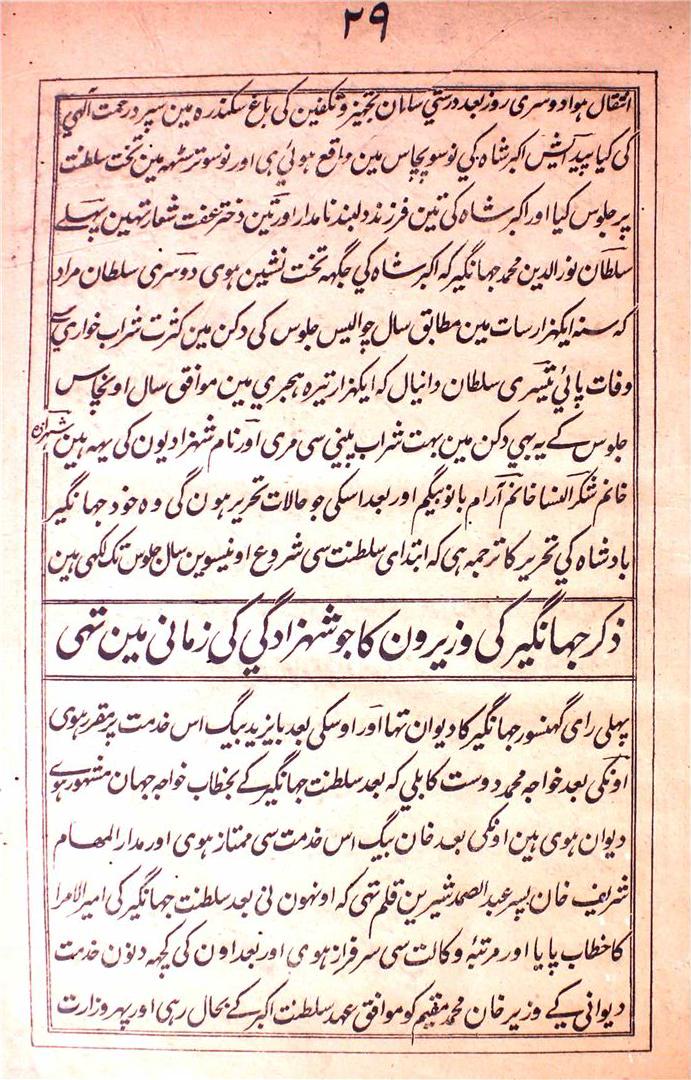 ۲۹
انتقال ہوا دوسری روز بعد درستي سامان تجہیز و تکفین کی باغ سکندرہ مین سپرد رحمت الٰہي
کی کیا پیدایش اکبر شاہ کي نو سو پچاس مین واقع ہوئي ہی اور نو سو ترسٹہہ مین تخت سلطنت
پر جلوس کیا اور اکبر شاہ کی تین فرزند دلبند نامدار اور تین دختر عفت شعار تہین پہلے
سلطان نور الدین محمد جہانگیر کہ اکبر شاہ کي جگہہ تخت نشین ہوی دوسری سلطان مراد
کہ سنہ ایکہزار سات مین مطابق سال چوالیس جلوس کی دکن مین کثرت شراب خواري سے
وفات پائي تیسری سلطان دانیال کہ ایکہزار تیرہ ہجري مین موافق سال اونچاس
جلوس کے یہ بہي دکن مین بہت شراب پیني سی مری اور نام شہزادیون کی یہہ ہین شہزادہ
خانم شکر النسا خانم آرام بانو بیگم اور بعد اسکی جو حالات تحریر ہون گی وہ خود جہانگیر
بادشاہ کي تحریر کا ترجمہ ہی کہ ابتدای سلطنت سی شروع اونیسوین سال جلوس تک لکہی ہین
ذکر جہانگیر کی وزیرون کا جو شہزادگي کي زماني مین تہی
پہلی رای گہنسور جہانگیر کا دیوان تہا اور اوسکی بعد بایزید بیگ اس خدمت پر مقرر ہوی
اونکی بعد خواجہ محمد دوست کابلي کہ بعد سلطنت جہانگیر کے بخطاب خواجہ جہان مشہور ہوے
دیوان ہوی ہین اونکی بعد خان بیگ اس خدمت سی ممتاز ہوی اور مدار المہام
شریف خان پسر عبد الصمد شیرین قلم تہی کہ اونہون نی بعد سلطنت جہانگیر کی امیر الامرا
کا خطاب پایا اور مرتبۂ وکالت سی سرفراز ہوی اور بعد اون کی کچہہ دنون خدمت
دیواني کے وزیر خان محمد مقیم کو موافق عہد سلطنت اکبر کے بحال رہی اور پہر وزارت